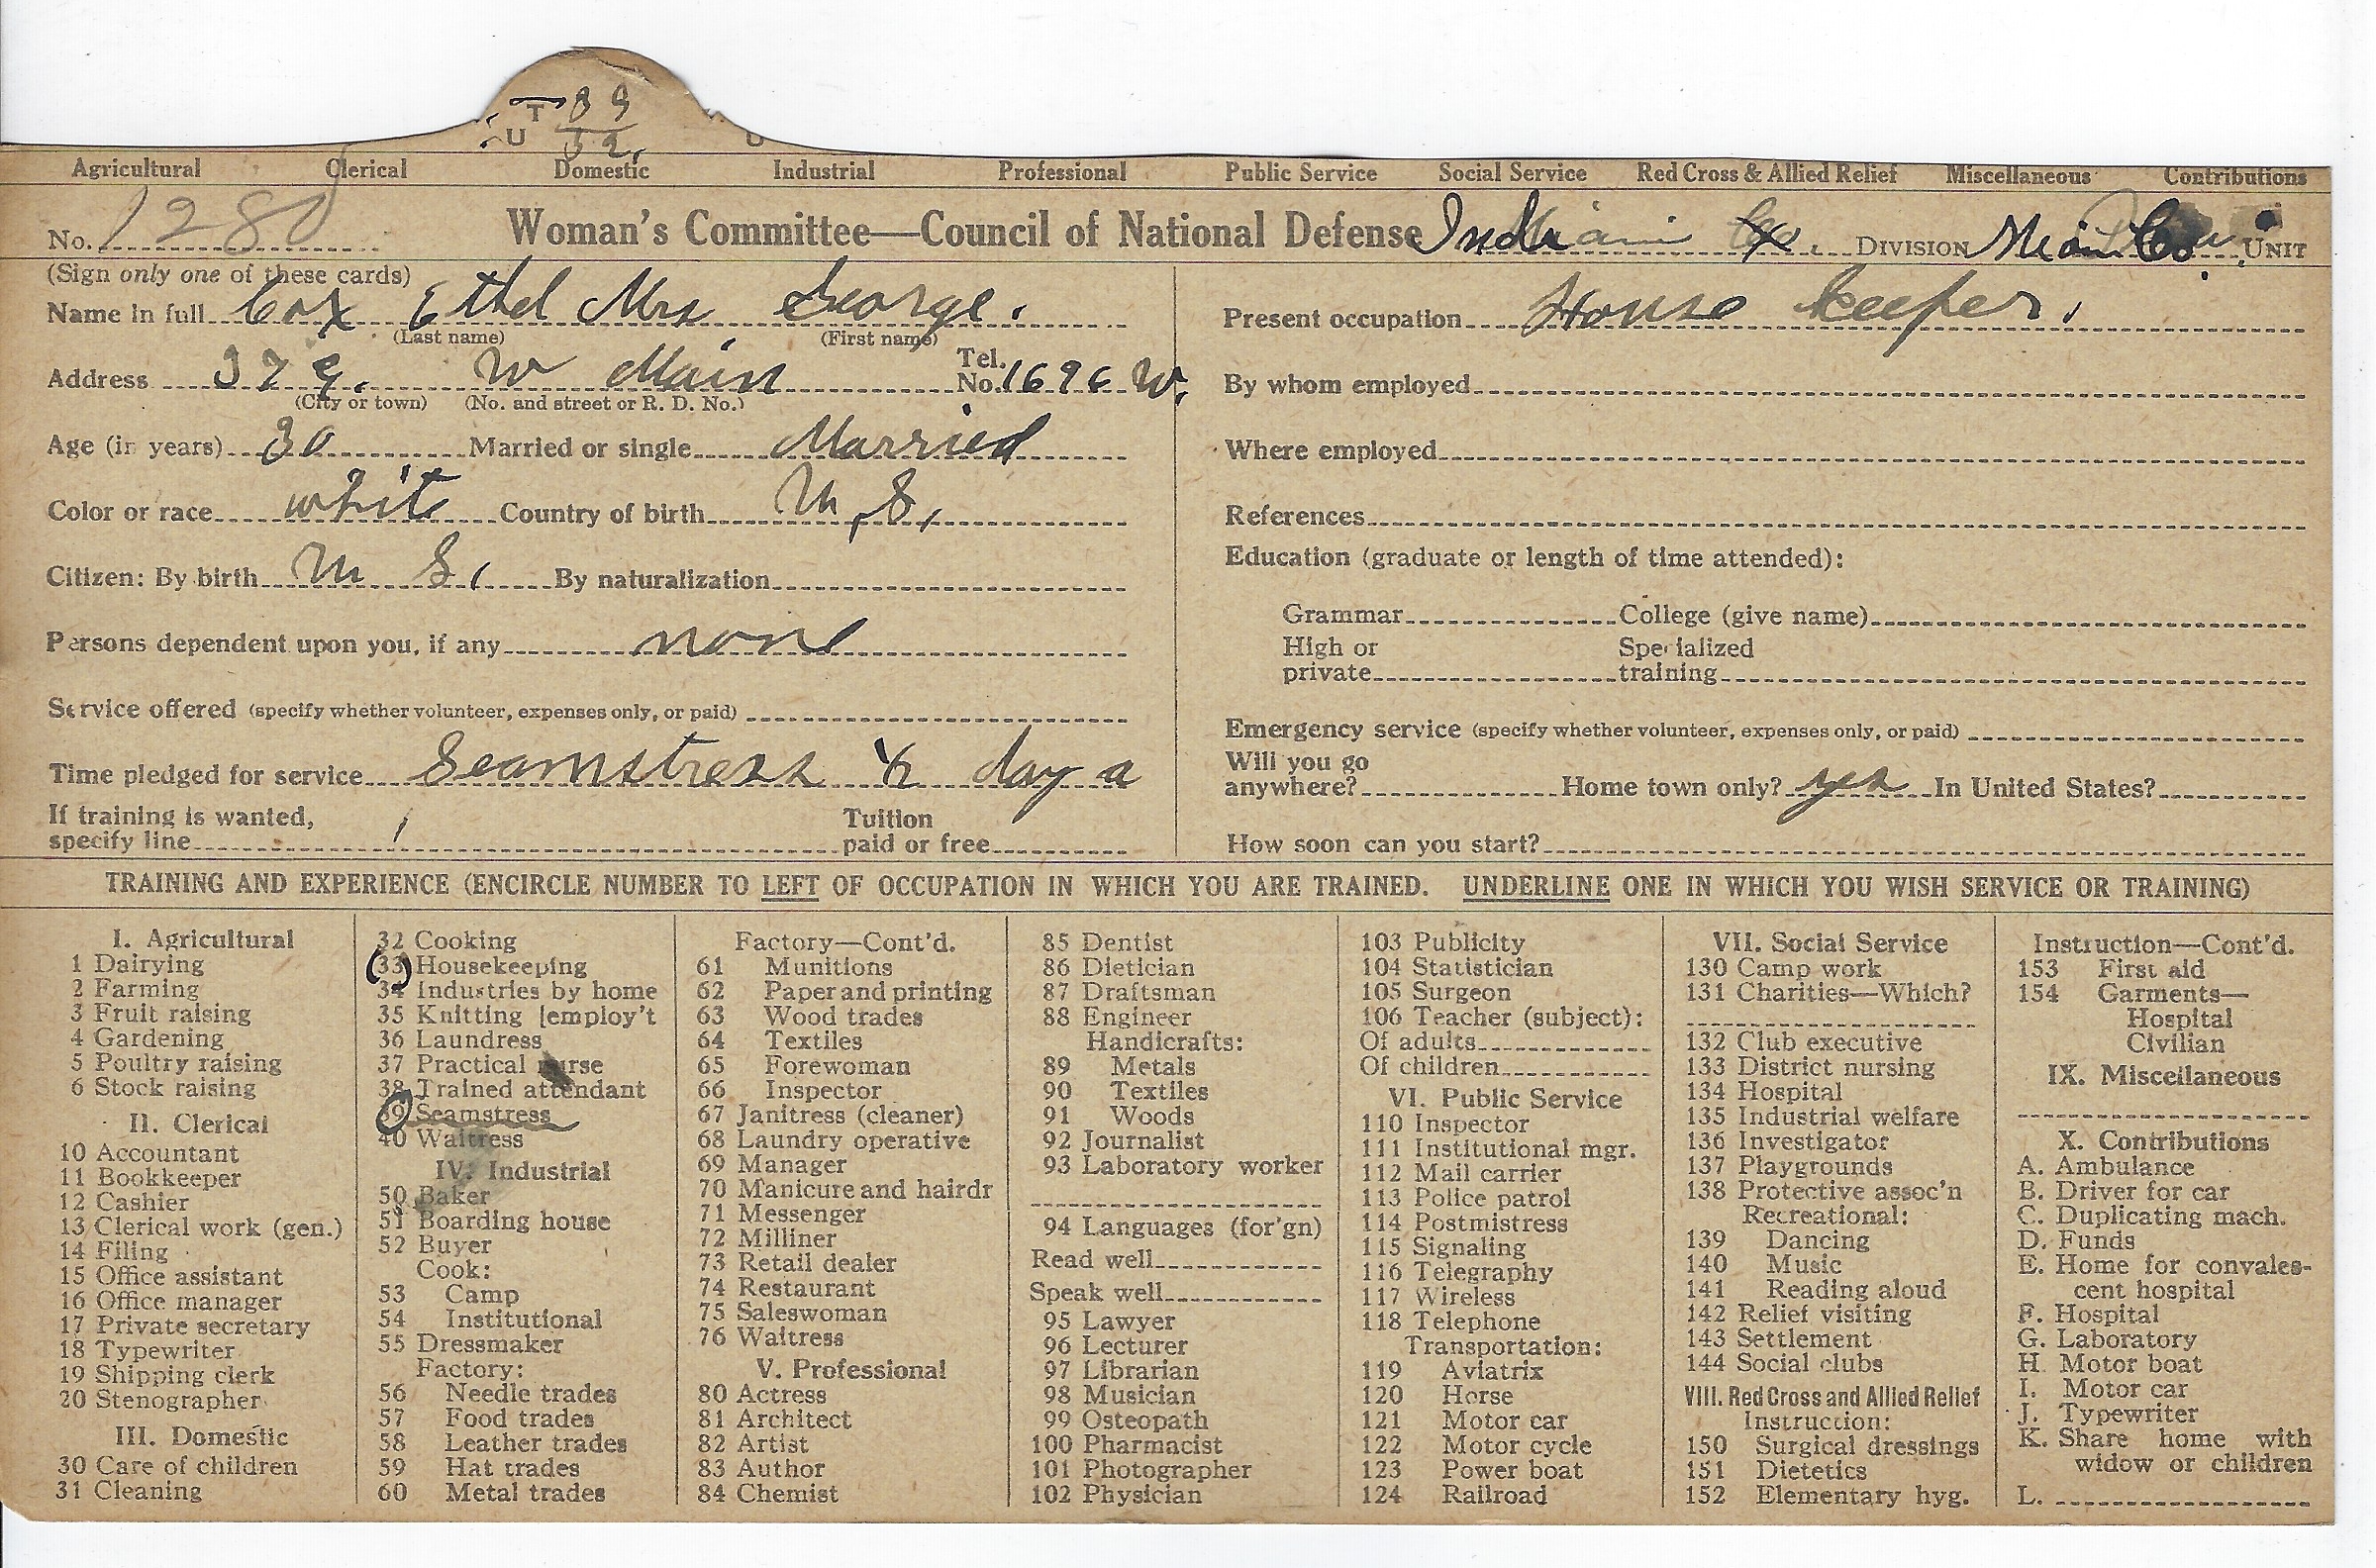 T 39
U 32.
Agricultural Clerical Domestic Industrial Professional Public Service Social Service Red Cross & Allied Relief Miscellaneous Contributions
No. 1280 Woman's Committee—Council of National Defense Ind. DIVISION Miami Co. UNIT
(Sign only one of these cards)
Name in full Cox Ethel Mrs George.
(Last name) (First name)
Address 379. W Main Tel. No. 1696 W.
(City or town) (No. and street or R. D. No.)
Age (in years) 30 Married or single Married
Color or race white Country of birth U.S.
Citizen: By birth U S. By naturalization
Persons dependent upon you, if any none
Service offered (specify whether volunteer, expenses only, or paid)
Time pledged for service Seamstress ½ day a
If training is wanted, specify line Tuition paid or free
Present occupation House keeper.
By whom employed
Where employed
References
Education (graduate or length of time attended):
Grammar College (give name)
High or private Specialized training
Emergency service (specify whether volunteer, expenses only, or paid)
Will you go anywhere? Home town only? yes In United States?
How soon can you start?
TRAINING AND EXPERIENCE (ENCIRCLE NUMBER TO LEFT OF OCCUPATION IN WHICH YOU ARE TRAINED. UNDERLINE ONE IN WHICH YOU WISH SERVICE OR TRAINING)
I. Agricultural
1 Dairying
2 Farming
3 Fruit raising
4 Gardening
5 Poultry raising
6 Stock raising
II. Clerical
10 Accountant
11 Bookkeeper
12 Cashier
13 Clerical work (gen.)
14 Filing
15 Office assistant
16 Office manager
17 Private secretary
18 Typewriter
19 Shipping clerk
20 Stenographer
III. Domestic
30 Care of children
31 Cleaning
32 Cooking
33 Housekeeping
34 Industries by home
35 Knitting [employ't
36 Laundress
37 Practical nurse
38 Trained attendant
39 Seamstress
40 Waitress
IV. Industrial
50 Baker
51 Boarding house
52 Buyer
Cook:
53 Camp
54 Institutional
55 Dressmaker
Factory:
56 Needle trades
57 Food trades
58 Leather trades
59 Hat trades
60 Metal trades
Factory—Cont'd.
61 Munitions
62 Paper and printing
63 Wood trades
64 Textiles
65 Forewoman
66 Inspector
67 Janitress (cleaner)
68 Laundry operative
69 Manager
70 Manicure and hairdr
71 Messenger
72 Milliner
73 Retail dealer
74 Restaurant
75 Saleswoman
76 Waitress
V. Professional
80 Actress
81 Architect
82 Artist
83 Author
84 Chemist
85 Dentist
86 Dietician
87 Draftsman
88 Engineer
Handicrafts:
89 Metals
90 Textiles
91 Woods
92 Journalist
93 Laboratory worker
94 Languages (for'gn)
Read well
Speak well
95 Lawyer
96 Lecturer
97 Librarian
98 Musician
99 Osteopath
100 Pharmacist
101 Photographer
102 Physician
103 Publicity
104 Statistician
105 Surgeon
106 Teacher (subject):
Of adults
Of children
VI. Public Service
110 Inspector
111 Institutional mgr.
112 Mail carrier
113 Police patrol
114 Postmistress
115 Signaling
116 Telegraphy
117 Wireless
118 Telephone
Transportation:
119 Aviatrix
120 Horse
121 Motor car
122 Motor cycle
123 Power boat
124 Railroad
VII. Social Service
130 Camp work
131 Charities—Which?
132 Club executive
133 District nursing
134 Hospital
135 Industrial welfare
136 Investigator
137 Playgrounds
138 Protective assoc'n
Recreational:
139 Dancing
140 Music
141 Reading aloud
142 Relief visiting
143 Settlement
144 Social clubs
VIII. Red Cross and Allied Relief
Instruction:
150 Surgical dressings
151 Dietetics
152 Elementary hyg.
Instruction—Cont'd.
153 First aid
154 Garments—
Hospital
Civilian
IX. Miscellaneous
X. Contributions
A. Ambulance
B. Driver for car
C. Duplicating mach.
D. Funds
E. Home for convales-
cent hospital
F. Hospital
G. Laboratory
H. Motor boat
I. Motor car
J. Typewriter
K. Share home with
widow or children
L.